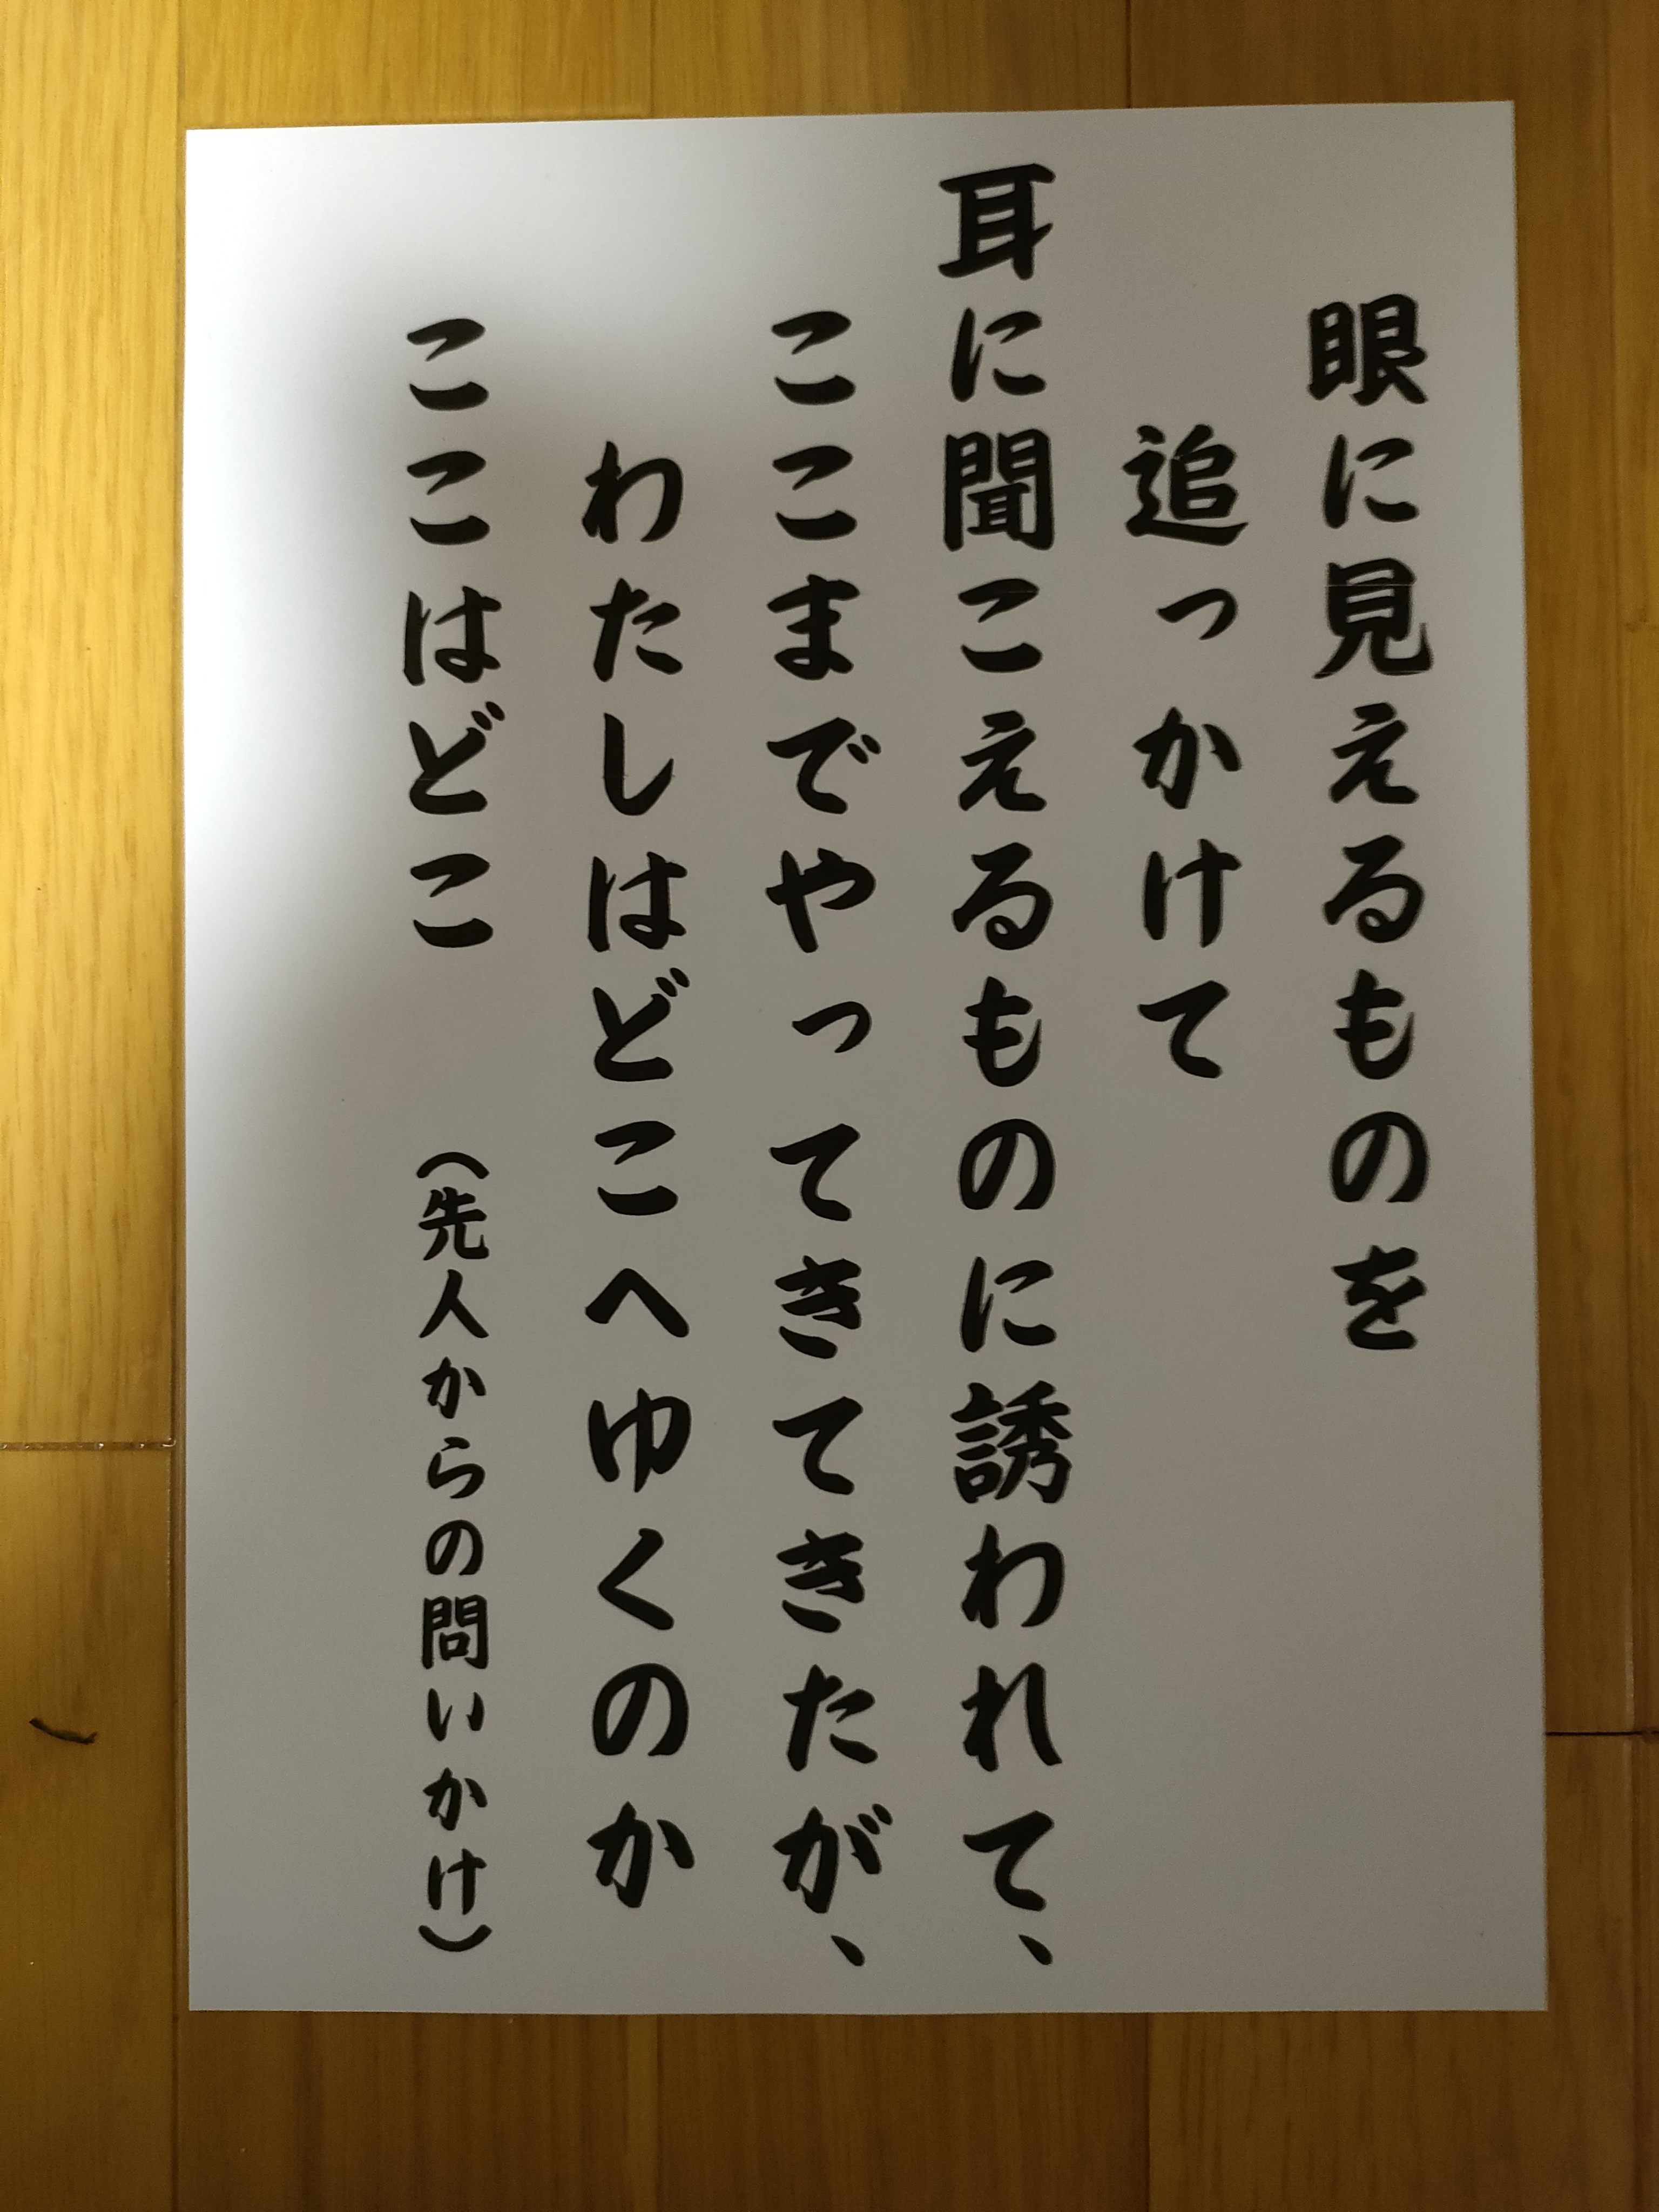 眼に見えるものを
追っかけて
耳に聞こえるものに誘われて、
ここまでやってきてきたが、
わたしはどこへゆくのか
ここはどこ （先人からの問いかけ）